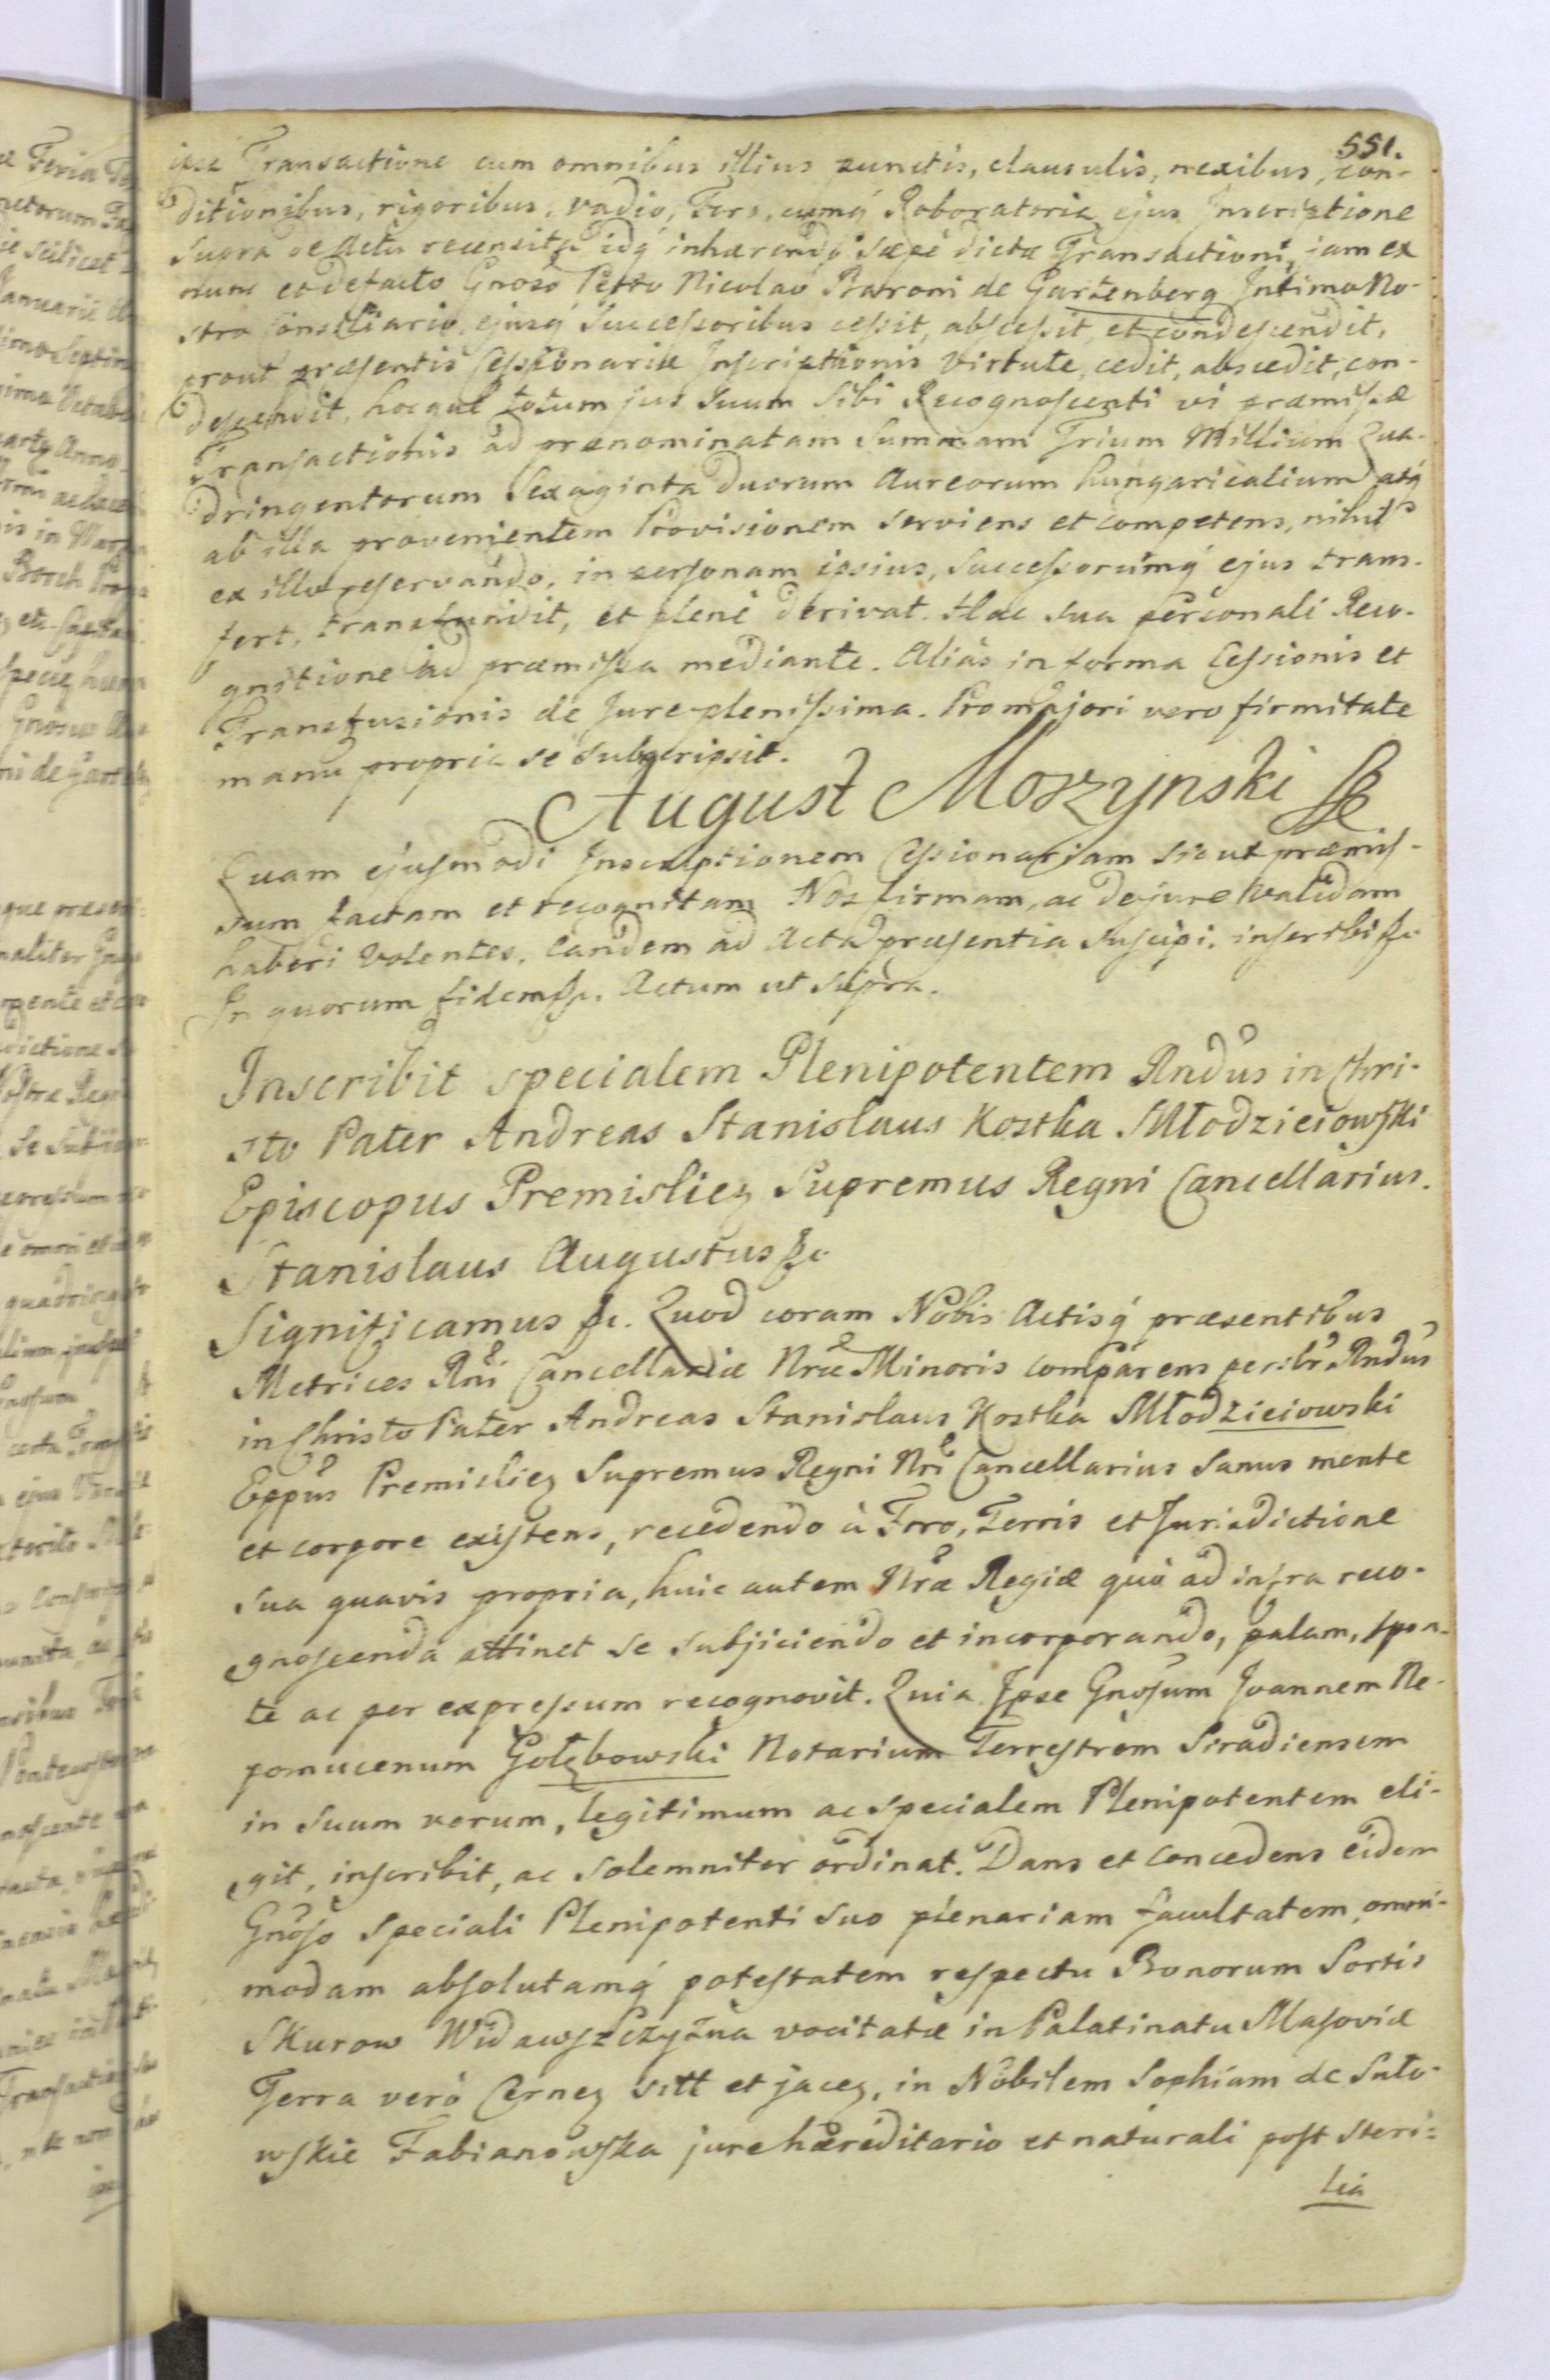 551.
ipsi Transactione cum omnibus illius punctis, clausulis, nexibus, con-
ditionibus, rigoribus, vadio, Foro, cumq́ Roboratoria ejus Inscriptione
supra de Actu recensita idq́ inhærendo sæpe dictæ Transactioni, jam ex
nunc et defacto Gnoso Petro Nicolao Baroni de Gartenberg Intimo No-
stro Consiliario, ejusq́ Successoribus cessit, abscessit, et condescendit,
prout præsentis Cessionariæ Inscriptionis virtute, cedit, abscedit, con-
descendit, hocque totum jus suum sibi Recognoscenti vi præmissæ
Transactionis ad prænominatam Summam Trium Millium Qua-
dringentorum Sexaginta Duorum Aureorum hungaricalium atq́
ab illa provenientem Provisionem serviens et competens, nihil
ex illo reservando, in personam ipsius, Successorumq́ ejus trans-
fert, transfundit, et plenè derivat. Hac sua personali Reco-
gnitione ad præmissa mediante. Aliàs in forma Cessionis et
Transfusionis de Jure plenissima. Pro majori vero firmitate
manu propria se subscripsit.
August Moszynski
Quam ejusmodi Inscriptionem Cessionariam sicut præmis-
sum factam et recognitam Nos firmam, ac de jure validam
haberi volentes, Eandem ad Acta præsentia suscipi, inscribi &c.
In quorum fidem &c. Actum ut supra.
Inscribit specialem Plenipotentem Rndus in Chri-
sto Pater Andreas Stanislaus Kostka Młodzieiowski
Episcopus Premisliez Supremus Regni Cancellarius.
Stanislaus Augustus &c.
Significamus &c. Quod coram Nobis Actisq́ præsentibus
Metrices Rni Cancellariæ Nræ Minoris comparens peribr̃ Rndus
in Christo Pater Andreas Stanislaus Kostka Młodzieiowski
Eppus Premisliez Supremus Regni Nri Cancellarius sanus mente
et corpore existens, recedendo à Foro, Terris et Jurisdictione
sua quavis propria, huic autem Nræ Regiæ quò ad infra reco-
gnoscenda attinet se subjiciendo et incorporando, palam, spon-
te ac per expressum recognovit. Quia Ipse Gnosum Joannem Ne-
pomucenum Gołębowski Notarium Terrestrem Siradiensem
in suum verum, legitimum ac specialem Plenipotentem eli-
git, inscribit, ac solemniter ordinat. Dans et Concedens eidem
Gnoso Speciali Plenipotenti suo plenariam facultatem, omni-
modam absolutamq́ potestatem respectu Bonorum Sortis
Skurow Widawszczyzna vocitatæ in Palatinatu Masoviæ
Terra verò Cernez sitt et jacez, in Nobilem Sophiam de Suło-
wskie Fabianowska jure hæreditario et naturali post steri=
lia